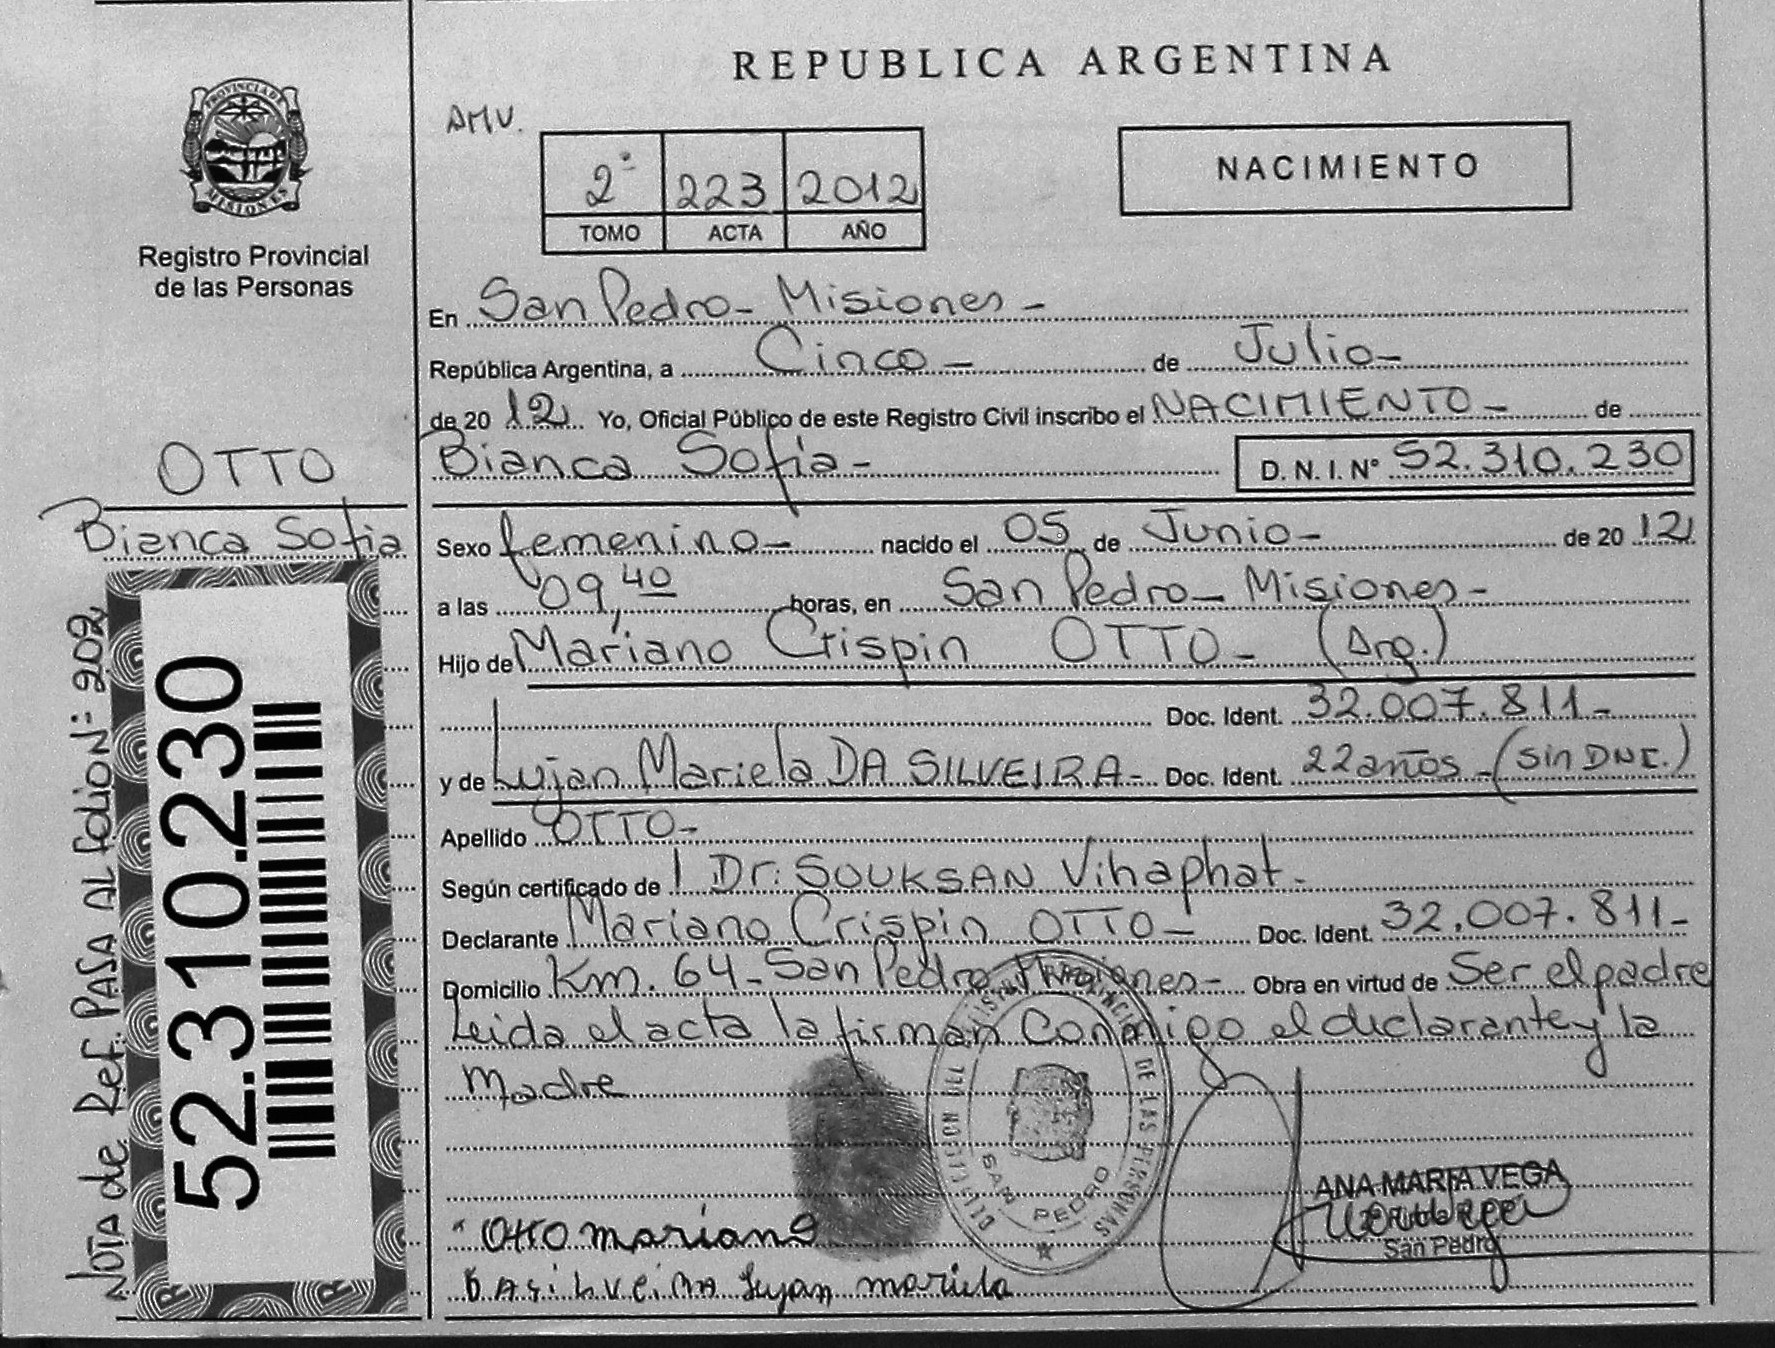 PROVINCIA DE
MISIONES
Registro Provincial
de las Personas
OTTO
Bianca Sofia
NOTA de Ref. PASA AL Folio Nº 202
52.310.230
REPUBLICA ARGENTINA
AMV.
2º 223 2012
TOMO ACTA AÑO
NACIMIENTO
En San Pedro - Misiones -
República Argentina, a Cinco - de Julio -
de 20 12 Yo, Oficial Público de este Registro Civil inscribo el NACIMIENTO - de
Bianca Sofía - D. N. I. Nº 52.310.230
Sexo femenino - nacido el 05 de Junio - de 20 12
a las 09,40 horas, en San Pedro - Misiones -
Hijo de Mariano Crispin OTTO - (Arg.)
Doc. Ident. 32.007.811 -
y de Lujan Mariela DA SILVEIRA - Doc. Ident. 22 años - (Sin DNI.)
Apellido OTTO -
Según certificado de Dr: SOUKSAN Vihaphat -
Declarante Mariano Crispin OTTO - Doc. Ident. 32.007.811 -
Domicilio Km. 64 - San Pedro, Misiones - Obra en virtud de Ser el padre
Leida el acta la firman Conmigo el declarante y la
Madre
DE LAS PERSONAS
SAN PEDRO
ANA MARIA VEGA
San Pedro
Otto mariano
DASilveira Lujan mariela